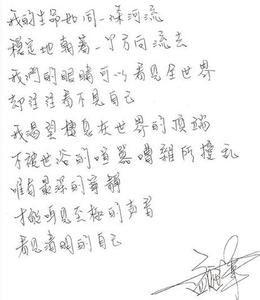 我的生命如同一条河流
穩定地朝著一个方向流去
我們的眼睛可以看見全世界
却往往看不見自己
我渴望棲息在世界的頂端
不被世俗的喧囂嘈雜所擾乱
唯有最深的寧靜
才能听見至極的声音
看見清明的自己